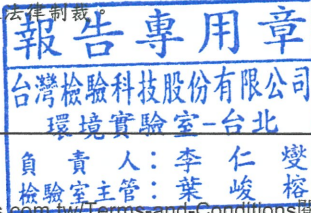 法律制裁。
報告專用章
台灣檢驗科技股份有限公司
環境實驗室-台北
負責人：李仁燮
檢驗室主管：葉峻榕
s.com.tw/Terms-and-Conditions